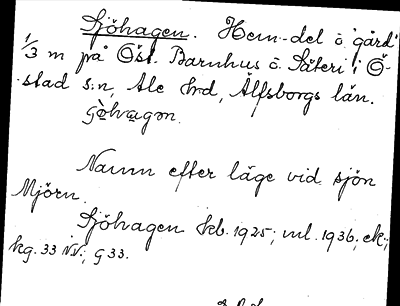 Sjöhagen. Hem.-del o. gård
1/3 m på Öst. Barnhus o. Säteri i Ö-
stad s:n, Ale hrd, Älfsborgs län.
Namn efter läge vid sjön
Mjörn.
Sjöhagen kb. 1925; ml. 1936; ek.;
kg. 33 NV; G 33.